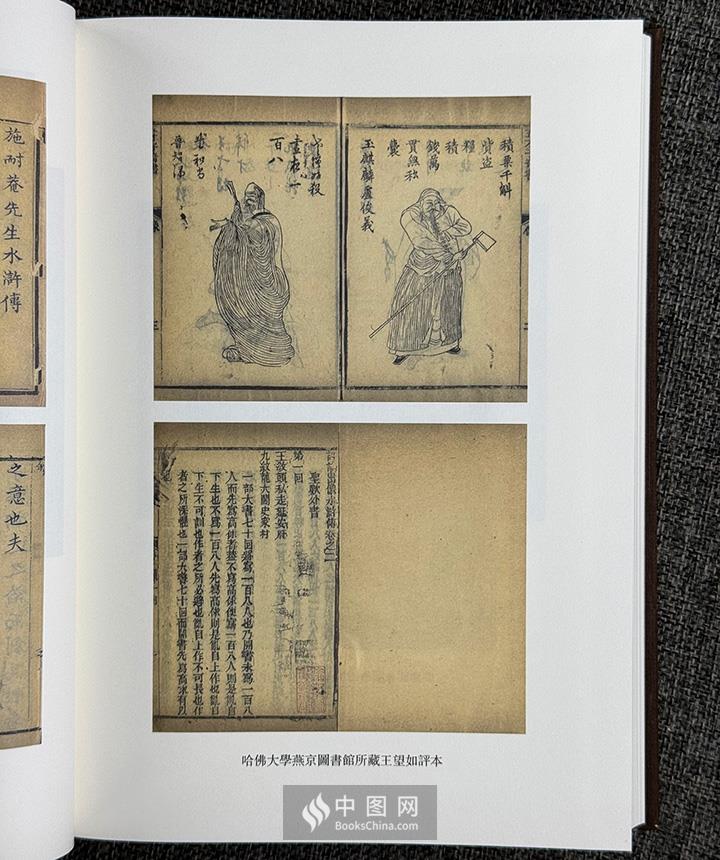 施耐菴先生水滸傳
之意也夫
積粟千斛
盜
糧
積
錢萬
貫
囊
玉麒麟盧俊義
殺
晝夜一
百八
花和尚
魯智深
出像水滸傳卷之二
聖歎外書
第一回
王教頭私走延安府
九紋龍大鬧史家村
一部大書七十回將寫一百八人也乃開書未寫一百八
人而先寫高俅者蓋不寫高俅便寫一百八人則是亂自
下生也不寫一百八人先寫高俅則是亂自上作也亂自
下生不可訓也作者之所必避也亂自上作不可長也作
者之所深懼也一部大書七十回而開書先寫高俅有以
哈佛大學燕京圖書館所藏王望如評本
中图网
BooksChina.com